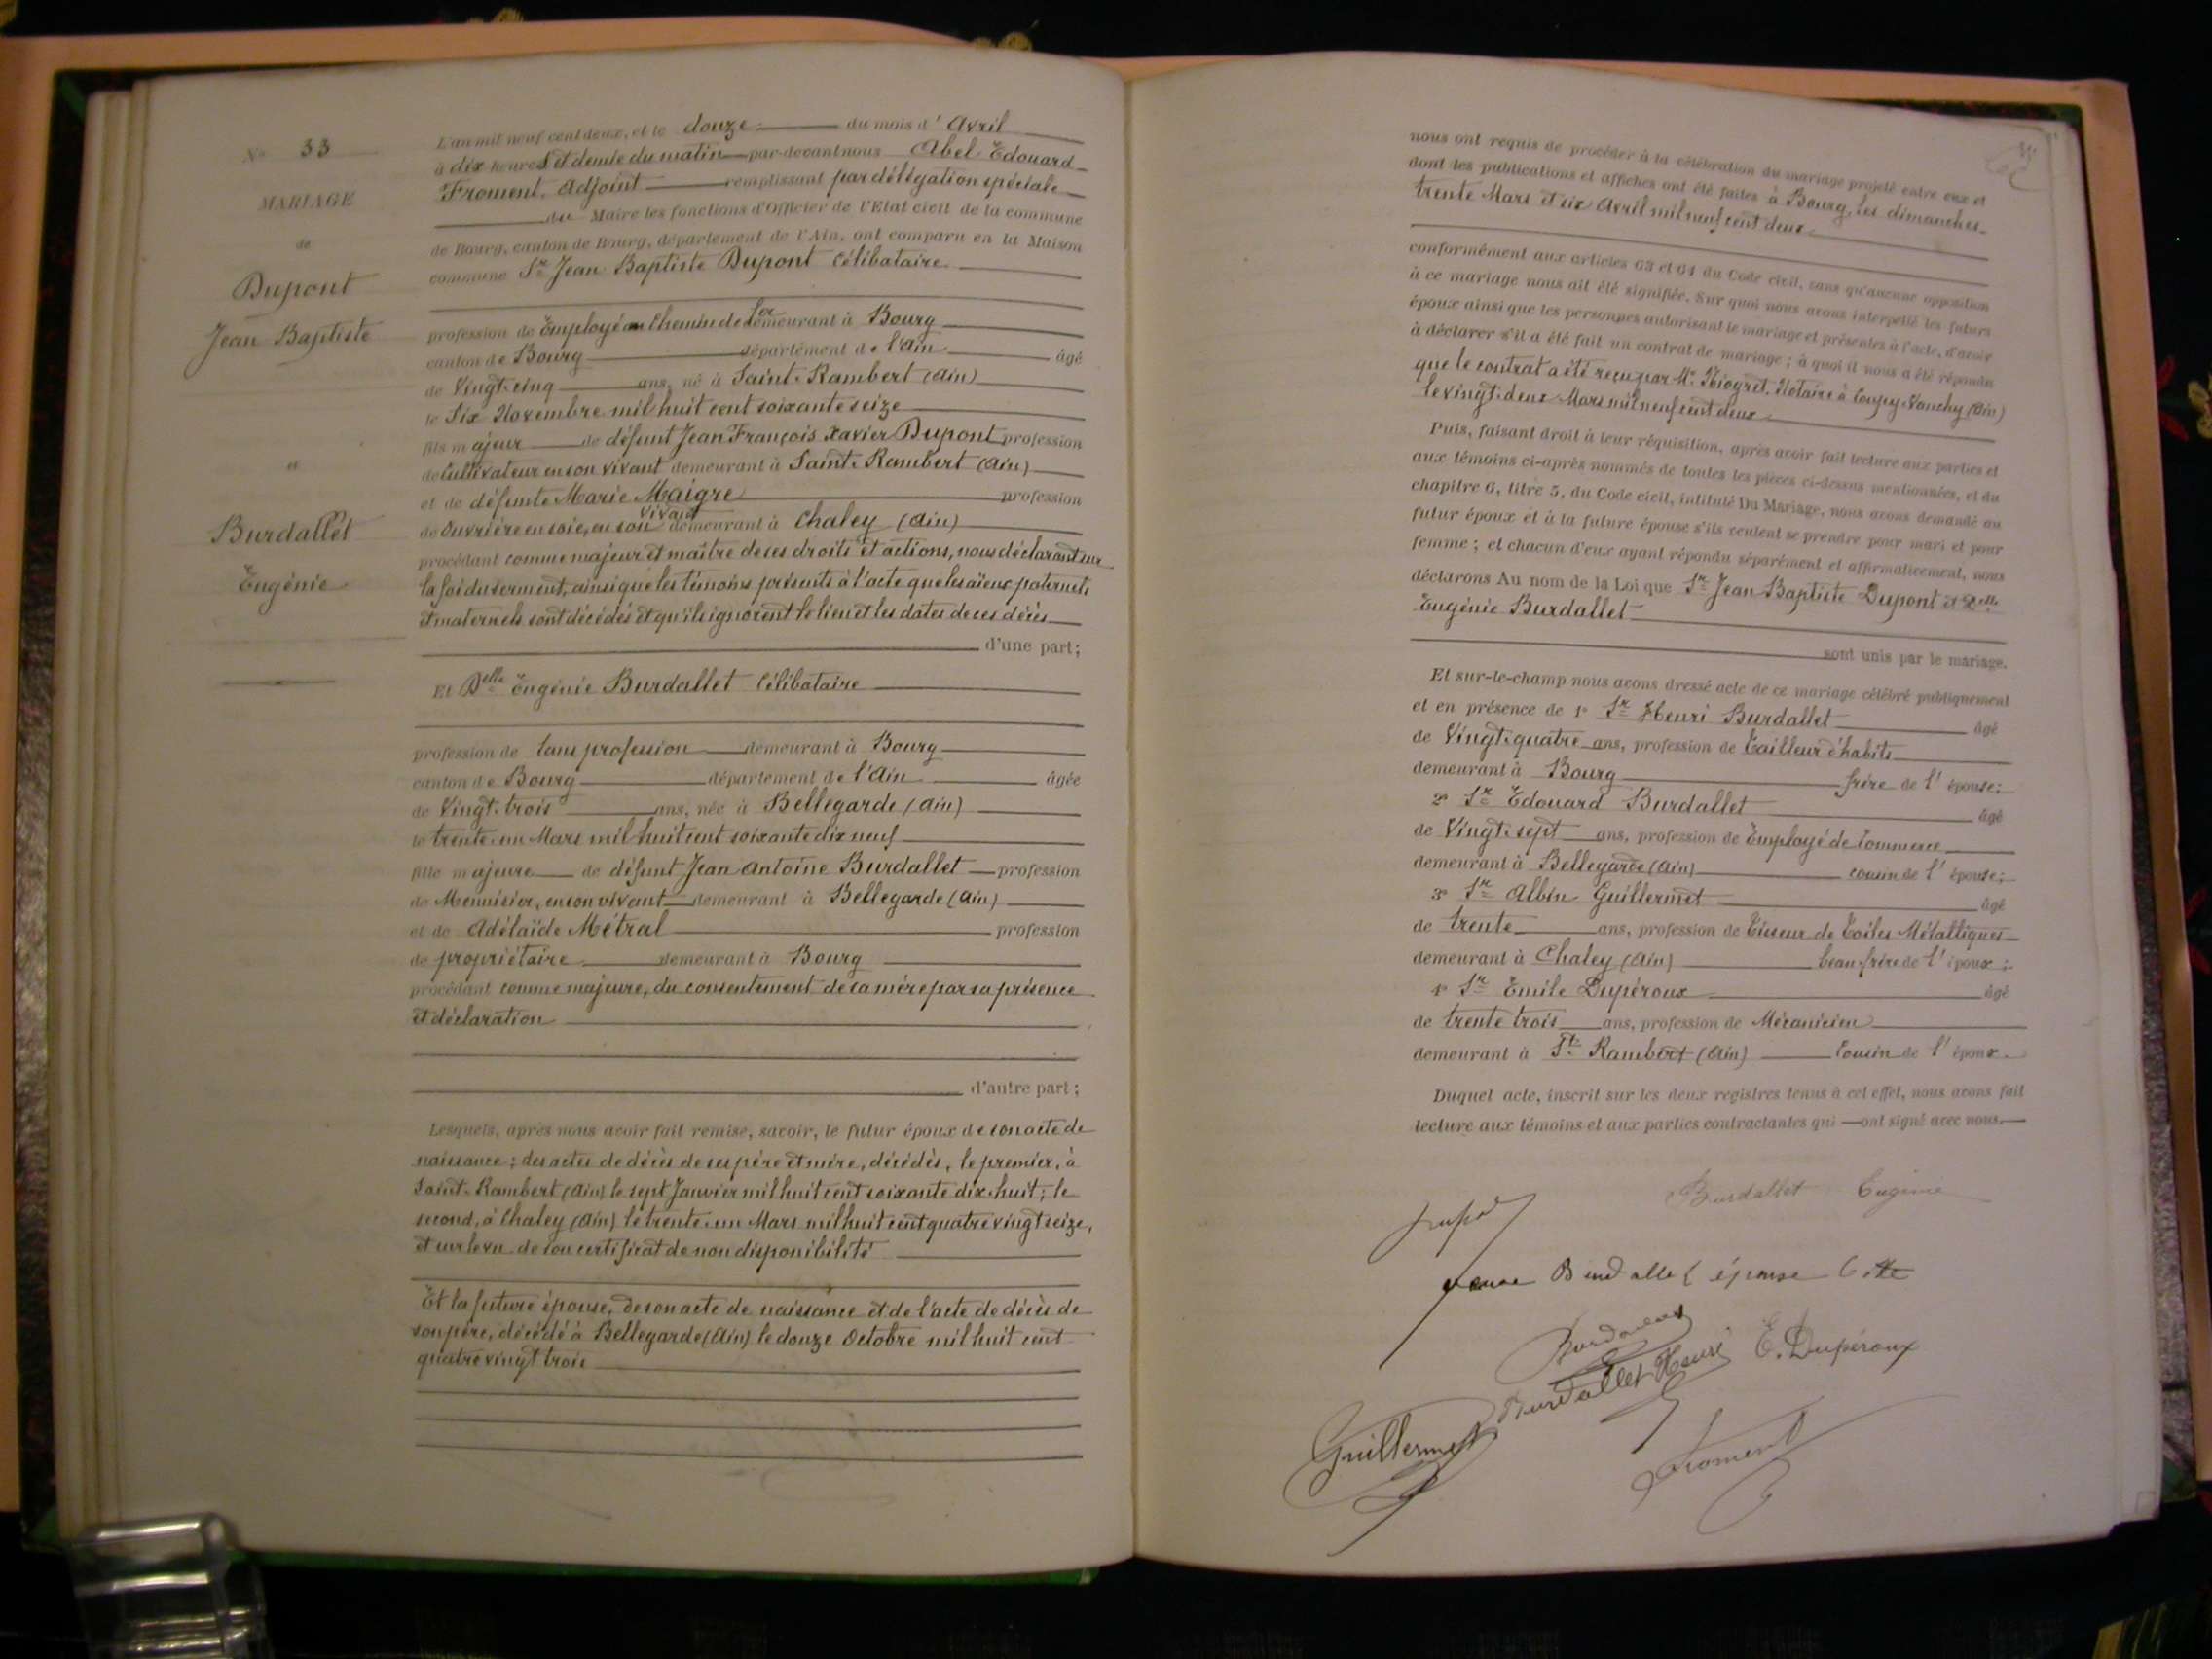 N° 33
MARIAGE
de
Dupont
Jean Baptiste
et
Burdallet
Eugénie
L'an mil neuf cent deux, et le douze du mois d' Avril
à dix heures et demie du matin par-devant nous Abel Edouard
Froment, Adjoint remplissant par délégation spéciale
du Maire les fonctions d'Officier de l'Etat civil de la commune
de Bourg, canton de Bourg, département de l'Ain, ont comparu en la Maison
commune Sr Jean Baptiste Dupont Célibataire
profession de Employé au Chemin de fer demeurant à Bourg
canton de Bourg département de l'Ain âgé
de Vingt-cinq ans, né à Saint-Rambert (Ain)
le Six Novembre mil huit cent soixante seize
fils majeur de défunt Jean François Xavier Dupont profession
de Cultivateur en son vivant demeurant à Saint-Rambert (Ain)
et de défunte Marie Maigre profession
de Ouvrière en soie, en son vivant demeurant à Chaley (Ain)
procédant comme majeur et maître de ses droits et actions, nous déclarant sur
la foi du serment, ainsi que les témoins présents à l'acte que les aïeux paternels
et maternels sont décédés et qu'ils ignorent le lieu et les dates de ces décès
d'une part;
Et Delle Eugénie Burdallet Célibataire
profession de Sans profession demeurant à Bourg
canton de Bourg département de l'Ain âgée
de Vingt-trois ans, née à Bellegarde (Ain)
le trente-un Mars mil huit cent soixante dix neuf
fille majeure de défunt Jean Antoine Burdallet profession
de Menuisier, en son vivant demeurant à Bellegarde (Ain)
et de Adélaïde Métral profession
de propriétaire demeurant à Bourg
procédant comme majeure, du consentement de sa mère par sa présence
et déclaration
d'autre part;
Lesquels, après nous avoir fait remise, savoir, le futur époux de son acte de
naissance; des actes de décès de ses père et mère, décédés, le premier, à
Saint-Rambert (Ain) le sept Janvier mil huit cent soixante dix-huit; le
second, à Chaley (Ain) le trente-un Mars mil huit cent quatre vingt seize,
et sur le vu de son certificat de non disponibilité
Et la future épouse, de son acte de naissance et de l'acte de décès de
son père, décédé à Bellegarde (Ain) le douze Octobre mil huit cent
quatre vingt trois
nous ont requis de procéder à la célébration du mariage projeté entre eux et
dont les publications et affiches ont été faites à Bourg, les dimanches
trente Mars et six Avril mil neuf cent deux
conformément aux articles 63 et 64 du Code civil, sans qu'aucune opposition
à ce mariage nous ait été signifiée. Sur quoi nous avons interpellé les futurs
époux ainsi que les personnes autorisant le mariage et présentes à l'acte, d'avoir
à déclarer s'il a été fait un contrat de mariage; à quoi il nous a été répondu
que le contrat a été reçu par Me Niogret, Notaire à Coupy-Vanchy (Ain)
le vingt-deux Mars mil neuf cent deux
Puis, faisant droit à leur réquisition, après avoir fait lecture aux parties et
aux témoins ci-après nommés de toutes les pièces ci-dessus mentionnées, et du
chapitre 6, titre 5, du Code civil, intitulé Du Mariage, nous avons demandé au
futur époux et à la future épouse s'ils veulent se prendre pour mari et pour
femme; et chacun d'eux ayant répondu séparément et affirmativement, nous
déclarons Au nom de la Loi que Sr Jean Baptiste Dupont et Delle
Eugénie Burdallet
sont unis par le mariage.
Et sur-le-champ nous avons dressé acte de ce mariage célébré publiquement
et en présence de 1° Sr Henri Burdallet âgé
de Vingt-quatre ans, profession de Tailleur d'habits
demeurant à Bourg frère de l' épouse;
2° Sr Edouard Burdallet âgé
de Vingt-sept ans, profession de Employé de Commerce
demeurant à Bellegarde (Ain) cousin de l' épouse;
3° Sr Albin Guillermet âgé
de trente ans, profession de Tisseur de Toiles Métalliques
demeurant à Chaley (Ain) beau-frère de l' époux;
4° Sr Emile Dupéroux âgé
de trente trois ans, profession de Mécanicien
demeurant à St Rambert (Ain) Cousin de l' époux.
Duquel acte, inscrit sur les deux registres tenus à cet effet, nous avons fait
lecture aux témoins et aux parties contractantes qui ont signé avec nous.
Burdallet Eugénie
Dupont
Burdallet épouse
Burdallet
Burdallet Henri E. Dupéroux
Guillermet
Froment